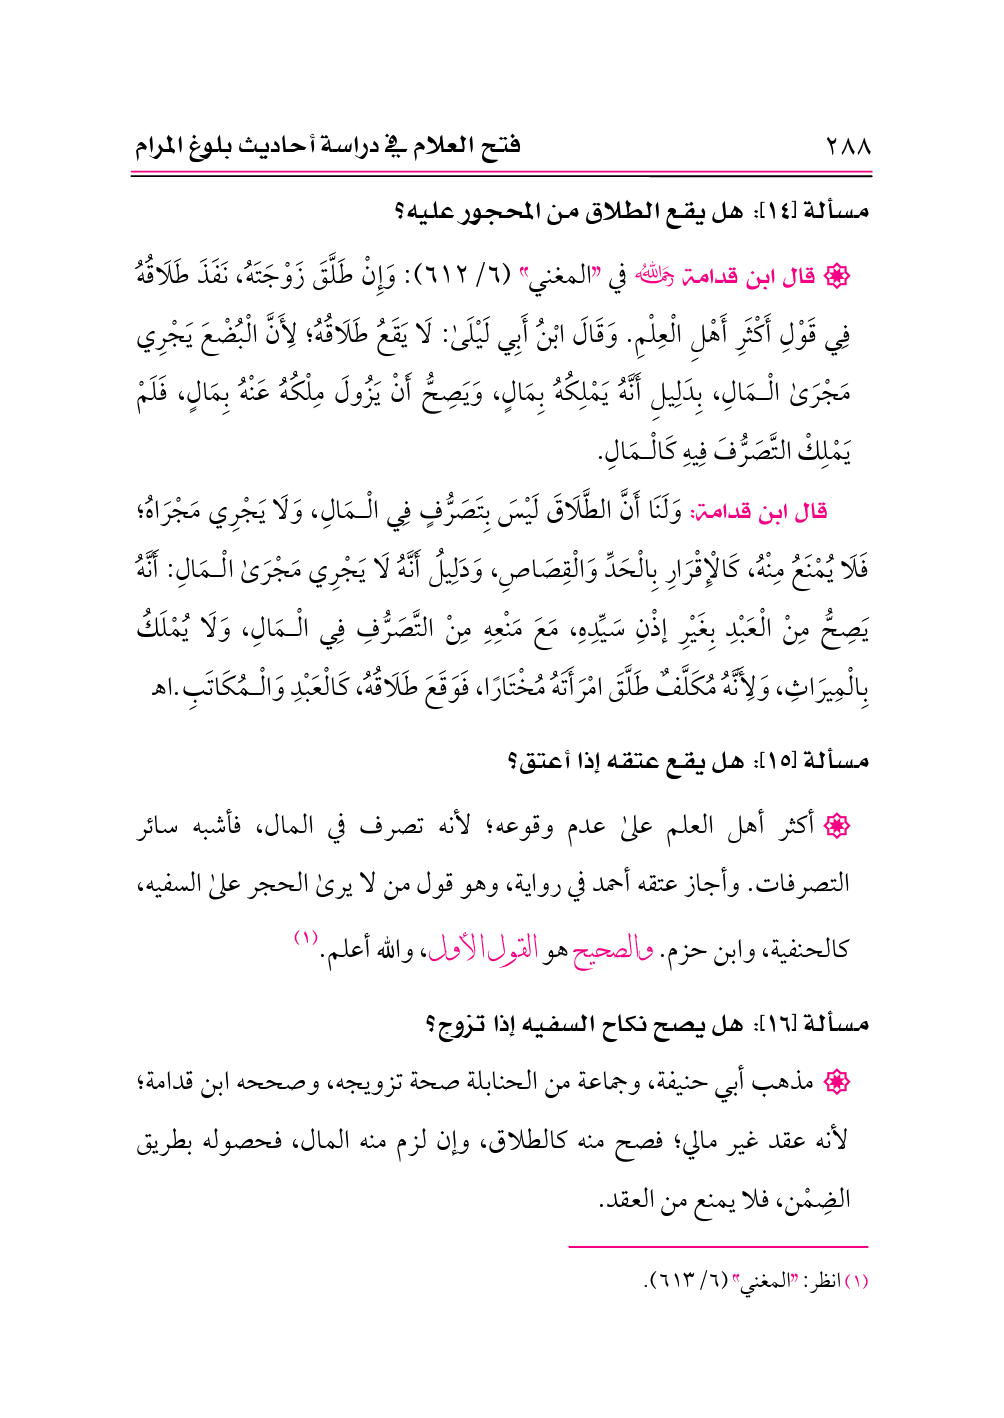 ٢٨٨ فتح العلام في دراسة أحاديث بلوغ المرام
مسألة [١٤]: هل يقع الطلاق من المحجور عليه؟
قال ابن قدامة رحمه الله في "المغني" (٦/ ٦١٢): وَإِنْ طَلَّقَ زَوْجَتَهُ، نَفَذَ طَلَاقُهُ
فِي قَوْلِ أَكْثَرِ أَهْلِ الْعِلْمِ. وَقَالَ ابْنُ أَبِي لَيْلَىٰ: لَا يَقَعُ طَلَاقُهُ؛ لِأَنَّ الْبُضْعَ يَجْرِي
مَجْرَىٰ الْـمَالِ، بِدَلِيلِ أَنَّهُ يَمْلِكُهُ بِمَالٍ، وَيَصِحُّ أَنْ يَزُولَ مِلْكُهُ عَنْهُ بِمَالٍ، فَلَمْ
يَمْلِكْ التَّصَرُّفَ فِيهِ كَالْـمَالِ.
قال ابن قدامة: وَلَنَا أَنَّ الطَّلَاقَ لَيْسَ بِتَصَرُّفٍ فِي الْـمَالِ، وَلَا يَجْرِي مَجْرَاهُ؛
فَلَا يُمْنَعُ مِنْهُ، كَالْإِقْرَارِ بِالْحَدِّ وَالْقِصَاصِ، وَدَلِيلُ أَنَّهُ لَا يَجْرِي مَجْرَىٰ الْـمَالِ: أَنَّهُ
يَصِحُّ مِنْ الْعَبْدِ بِغَيْرِ إذْنِ سَيِّدِهِ، مَعَ مَنْعِهِ مِنْ التَّصَرُّفِ فِي الْـمَالِ، وَلَا يُمْلَكُ
بِالْمِيرَاثِ، وَلِأَنَّهُ مُكَلَّفٌ طَلَّقَ امْرَأَتَهُ مُخْتَارًا، فَوَقَعَ طَلَاقُهُ، كَالْعَبْدِ وَالْـمُكَاتَبِ.اهـ
مسألة [١٥]: هل يقع عتقه إذا أعتق؟
أكثر أهل العلم علىٰ عدم وقوعه؛ لأنه تصرف في المال، فأشبه سائر
التصرفات. وأجاز عتقه أحمد في رواية، وهو قول من لا يرىٰ الحجر علىٰ السفيه،
كالحنفية، وابن حزم. والصحيح هو القول الأول، والله أعلم.(١)
مسألة [١٦]: هل يصح نكاح السفيه إذا تزوج؟
مذهب أبي حنيفة، وجماعة من الحنابلة صحة تزويجه، وصححه ابن قدامة؛
لأنه عقد غير مالي؛ فصح منه كالطلاق، وإن لزم منه المال، فحصوله بطريق
الضِمْن، فلا يمنع من العقد.
(١) انظر: "المغني" (٦/ ٦١٣).